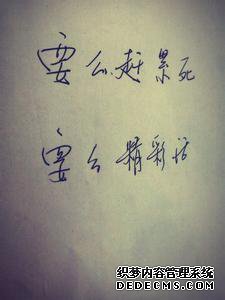 要么赶紧死
要么精彩活
织梦内容管理系统
DEDECMS.COM